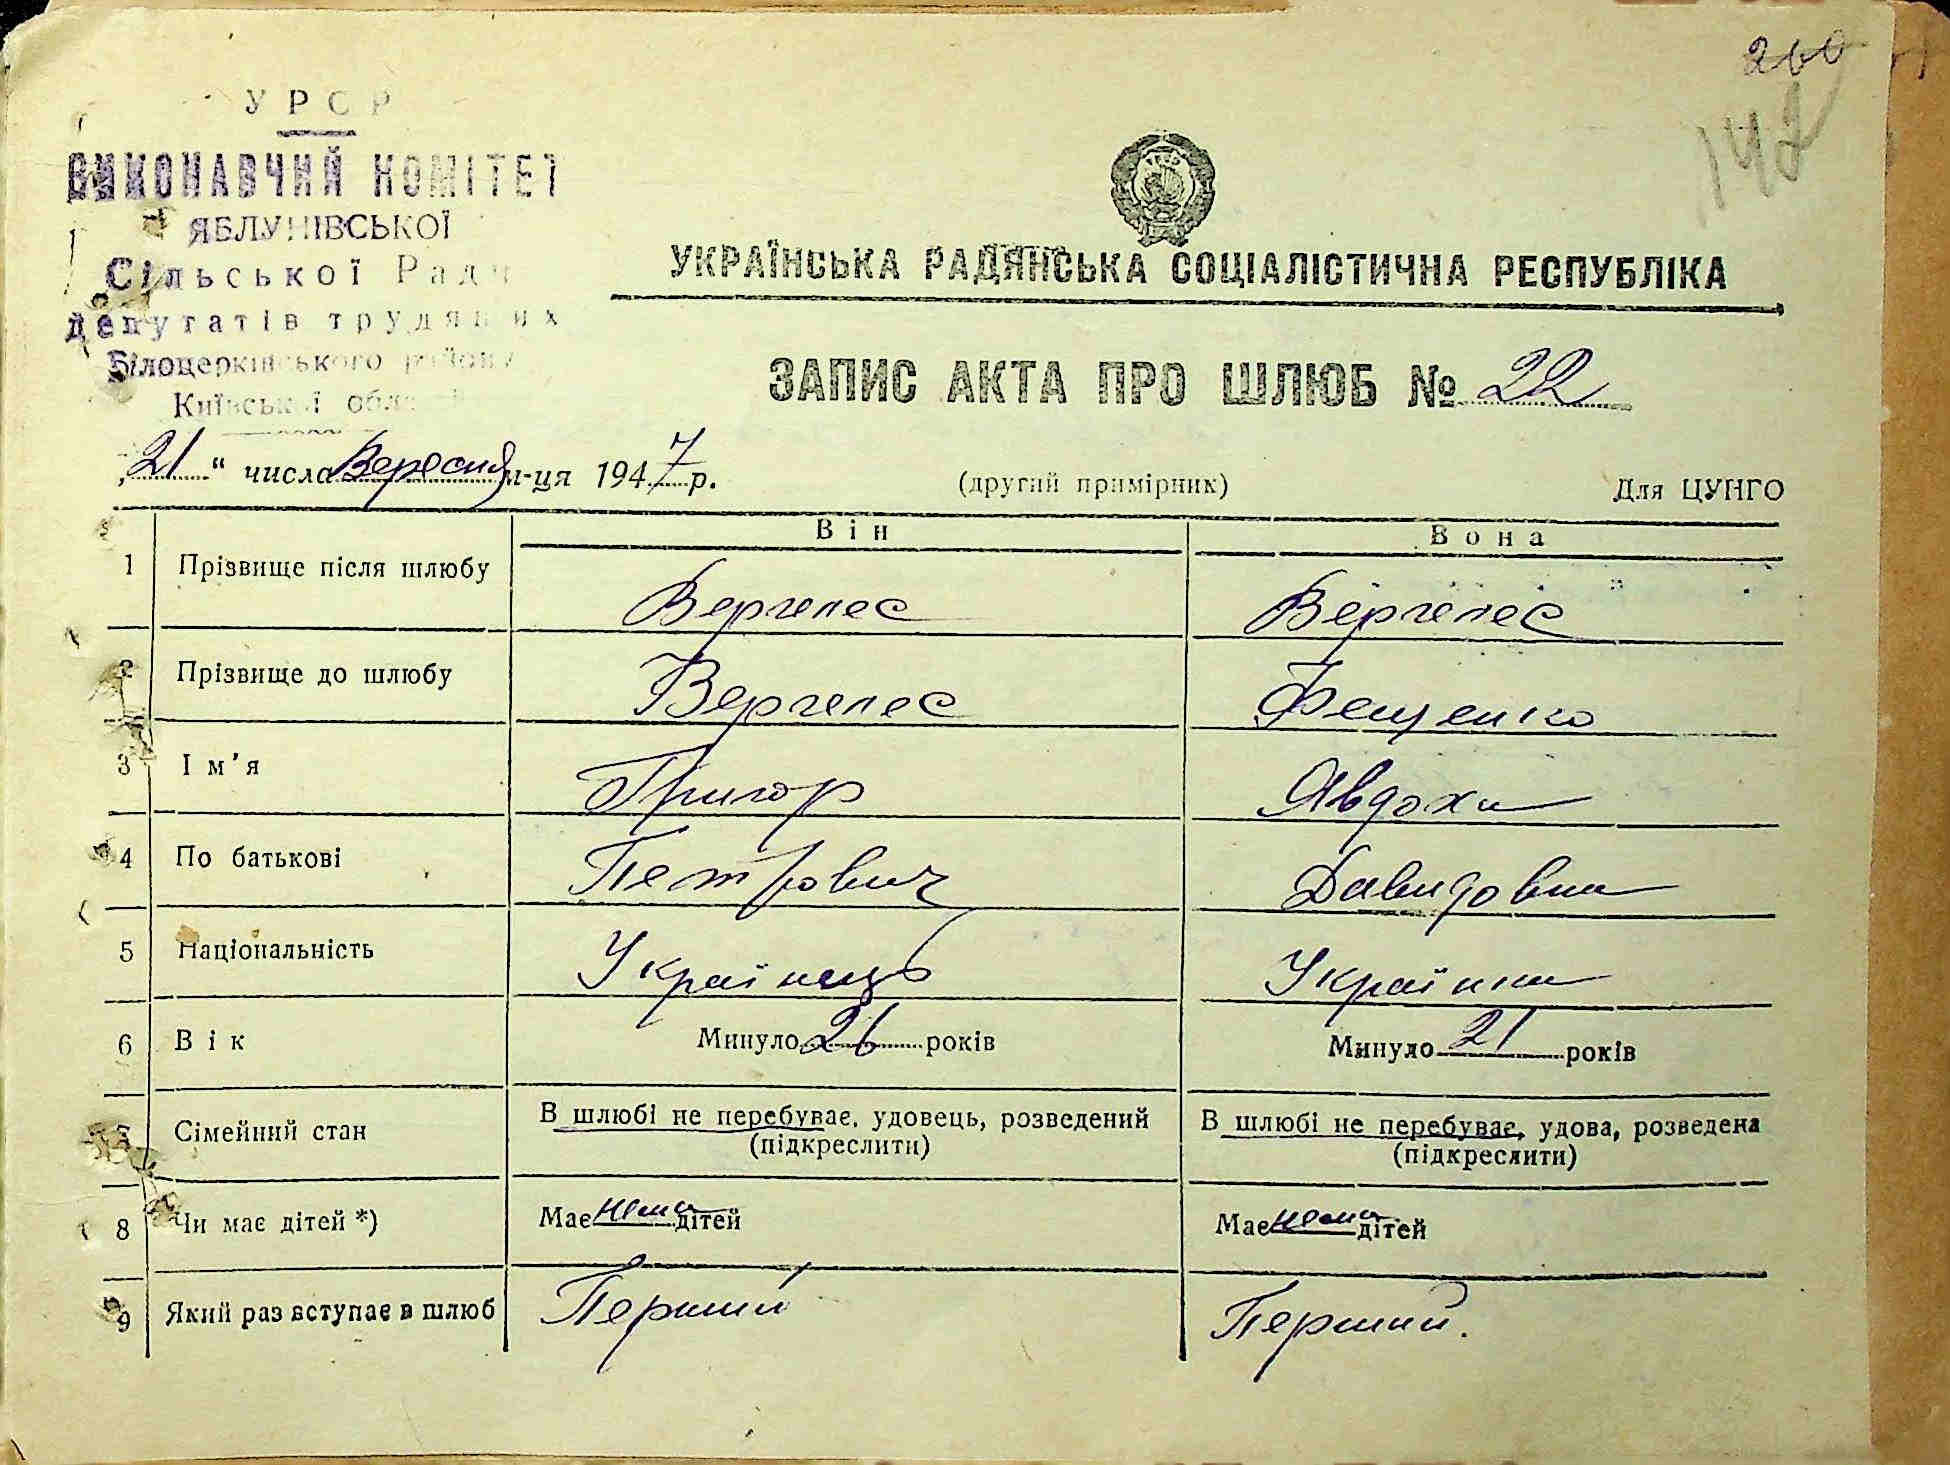 260
142
УРСР
ВИКОНАВЧИЙ КОМІТЕТ
ЯБЛУНІВСЬКОЇ
Сільської Ради
депутатів трудящих
Білоцерківського району
Київської області
УКРАЇНСЬКА РАДЯНСЬКА СОЦІАЛІСТИЧНА РЕСПУБЛІКА
ЗАПИС АКТА ПРО ШЛЮБ № 22
„21“ числа Вересня м-ця 1947 р. (другий примірник) Для ЦУНГО
Він Вона
1 Прізвище після шлюбу Вергелес Вергелес
2 Прізвище до шлюбу Вергелес Фещенко
3 Ім’я Григор Явдоха
4 По батькові Петрович Давидовна
5 Національність Українець Українка
6 Вік Минуло 26 років Минуло 21 років
7 Сімейний стан В шлюбі не перебуває, удовець, розведений В шлюбі не перебуває, удова, розведена
(підкреслити) (підкреслити)
8 Чи має дітей *) Має нема дітей Має нема дітей
9 Який раз вступає в шлюб Перший Перший.